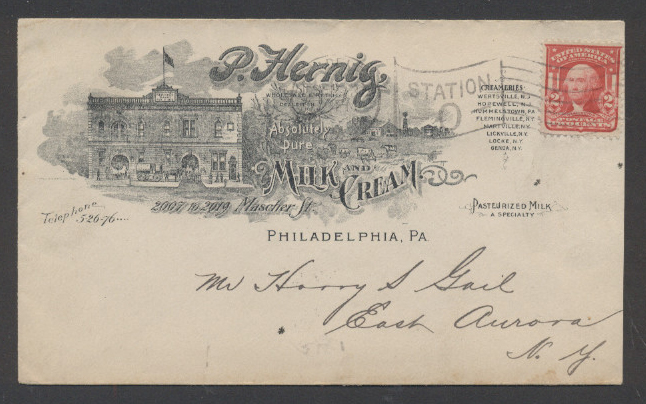 P. Hernig,
WHOLESALE & RETAIL
DEALER IN
Absolutely
Pure
MILK AND
CREAM
2007 to 2019 Mascher St.
PHILADELPHIA, PA.
Telephone
3-26-76
STATION
O
CREAMERIES
WERTSVILLE, N.J.
HOPEWELL, N.J.
HUMMELSTOWN, PA.
FLEMINGVILLE, N.Y.
MARTVILLE, N.Y.
LICKVILLE, N.Y.
LOCKE, N.Y.
GENOA, N.Y.
UNITED STATES
OF AMERICA
2 2
POSTAGE
TWO CENTS
PASTEURIZED MILK
A SPECIALTY
Mr Harry S Gail
East Aurora
N. Y.